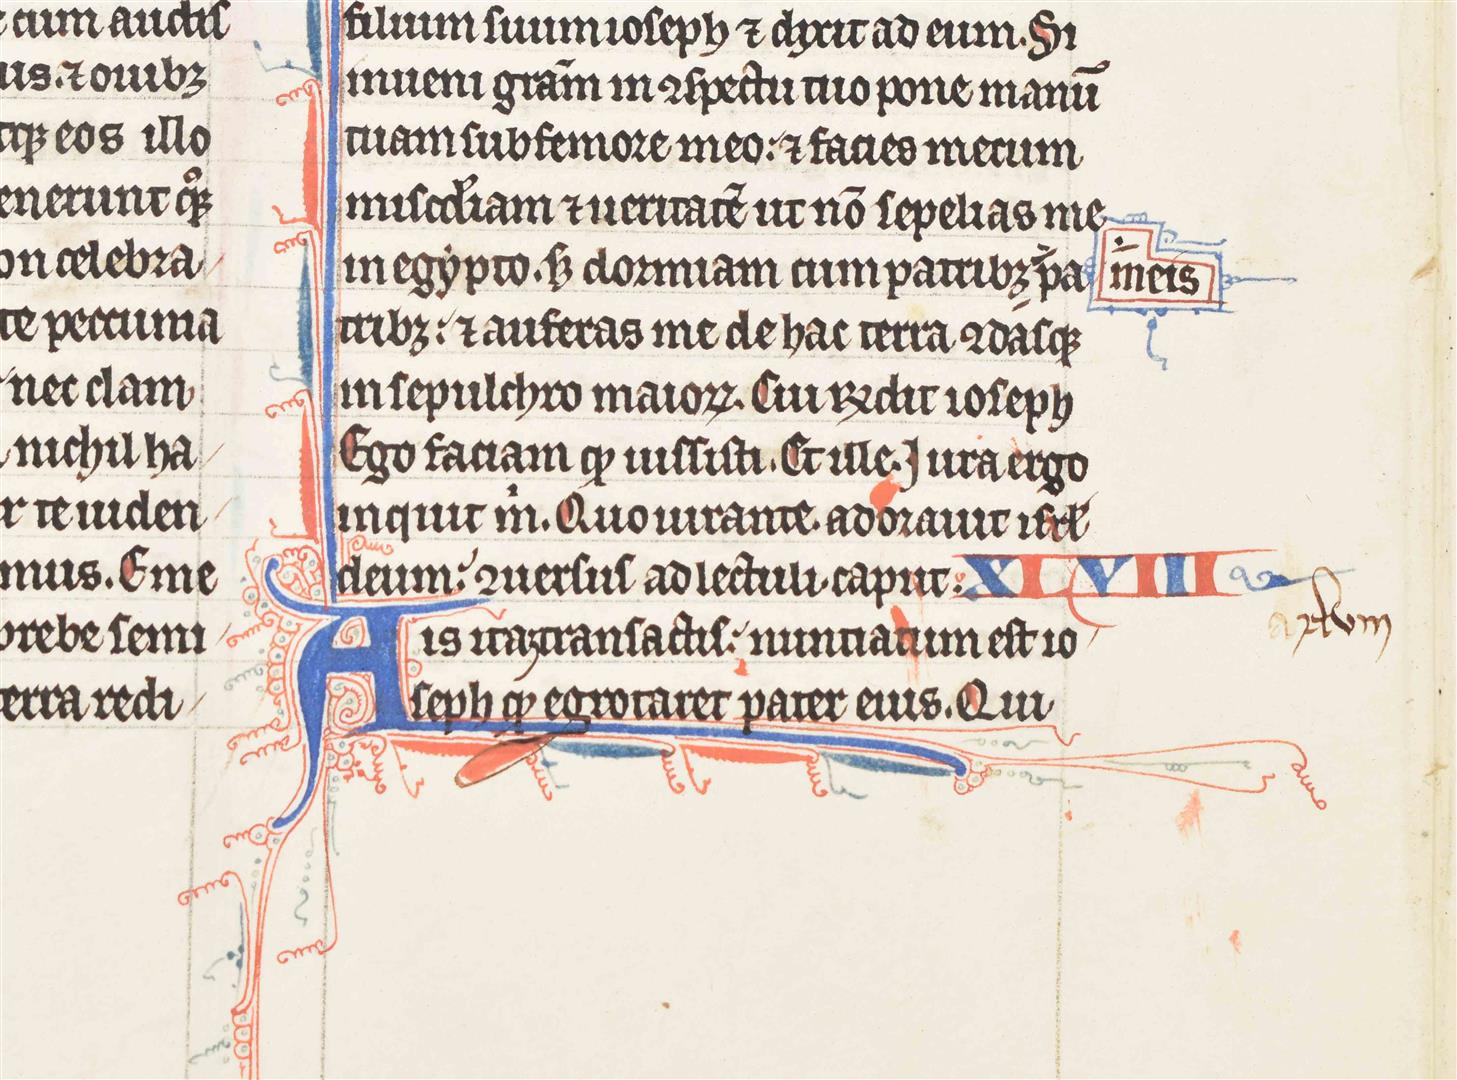 cum audis
us. ⁊ ouibꝫ
tqꝫ eos illo
enerunt qꝫ
on celebra
te peccunia
nec clam
nichil ha
r te uiden
mus. Eme
prebe semi
terra redi
filium suum ioseph ⁊ dixit ad eum. Si
inueni grãm in ꝯspectu tuo pone manũ
tuam sub femore meo: ⁊ facies mecum
miscdiam ⁊ ueritatẽ ut nõ sepelias me
in egypto. sꝫ dormiam cum patribꝫ pa
meis
tribꝫ: ⁊ auferas me de hac terra ꝯdasqꝫ
in sepulchro maioꝝ. Cui rñdit ioseph
Ego faciam qꝫ iussisti. Et ille. Jura ergo
inquit m. Quo iurante. adorauit isrl
deum: ꝯuersus ad lectuli. caput: XLVIII
Ais itaqꝫ transactis: nuntiatum est io
seph qꝫ egrotaret pater eius. Qui